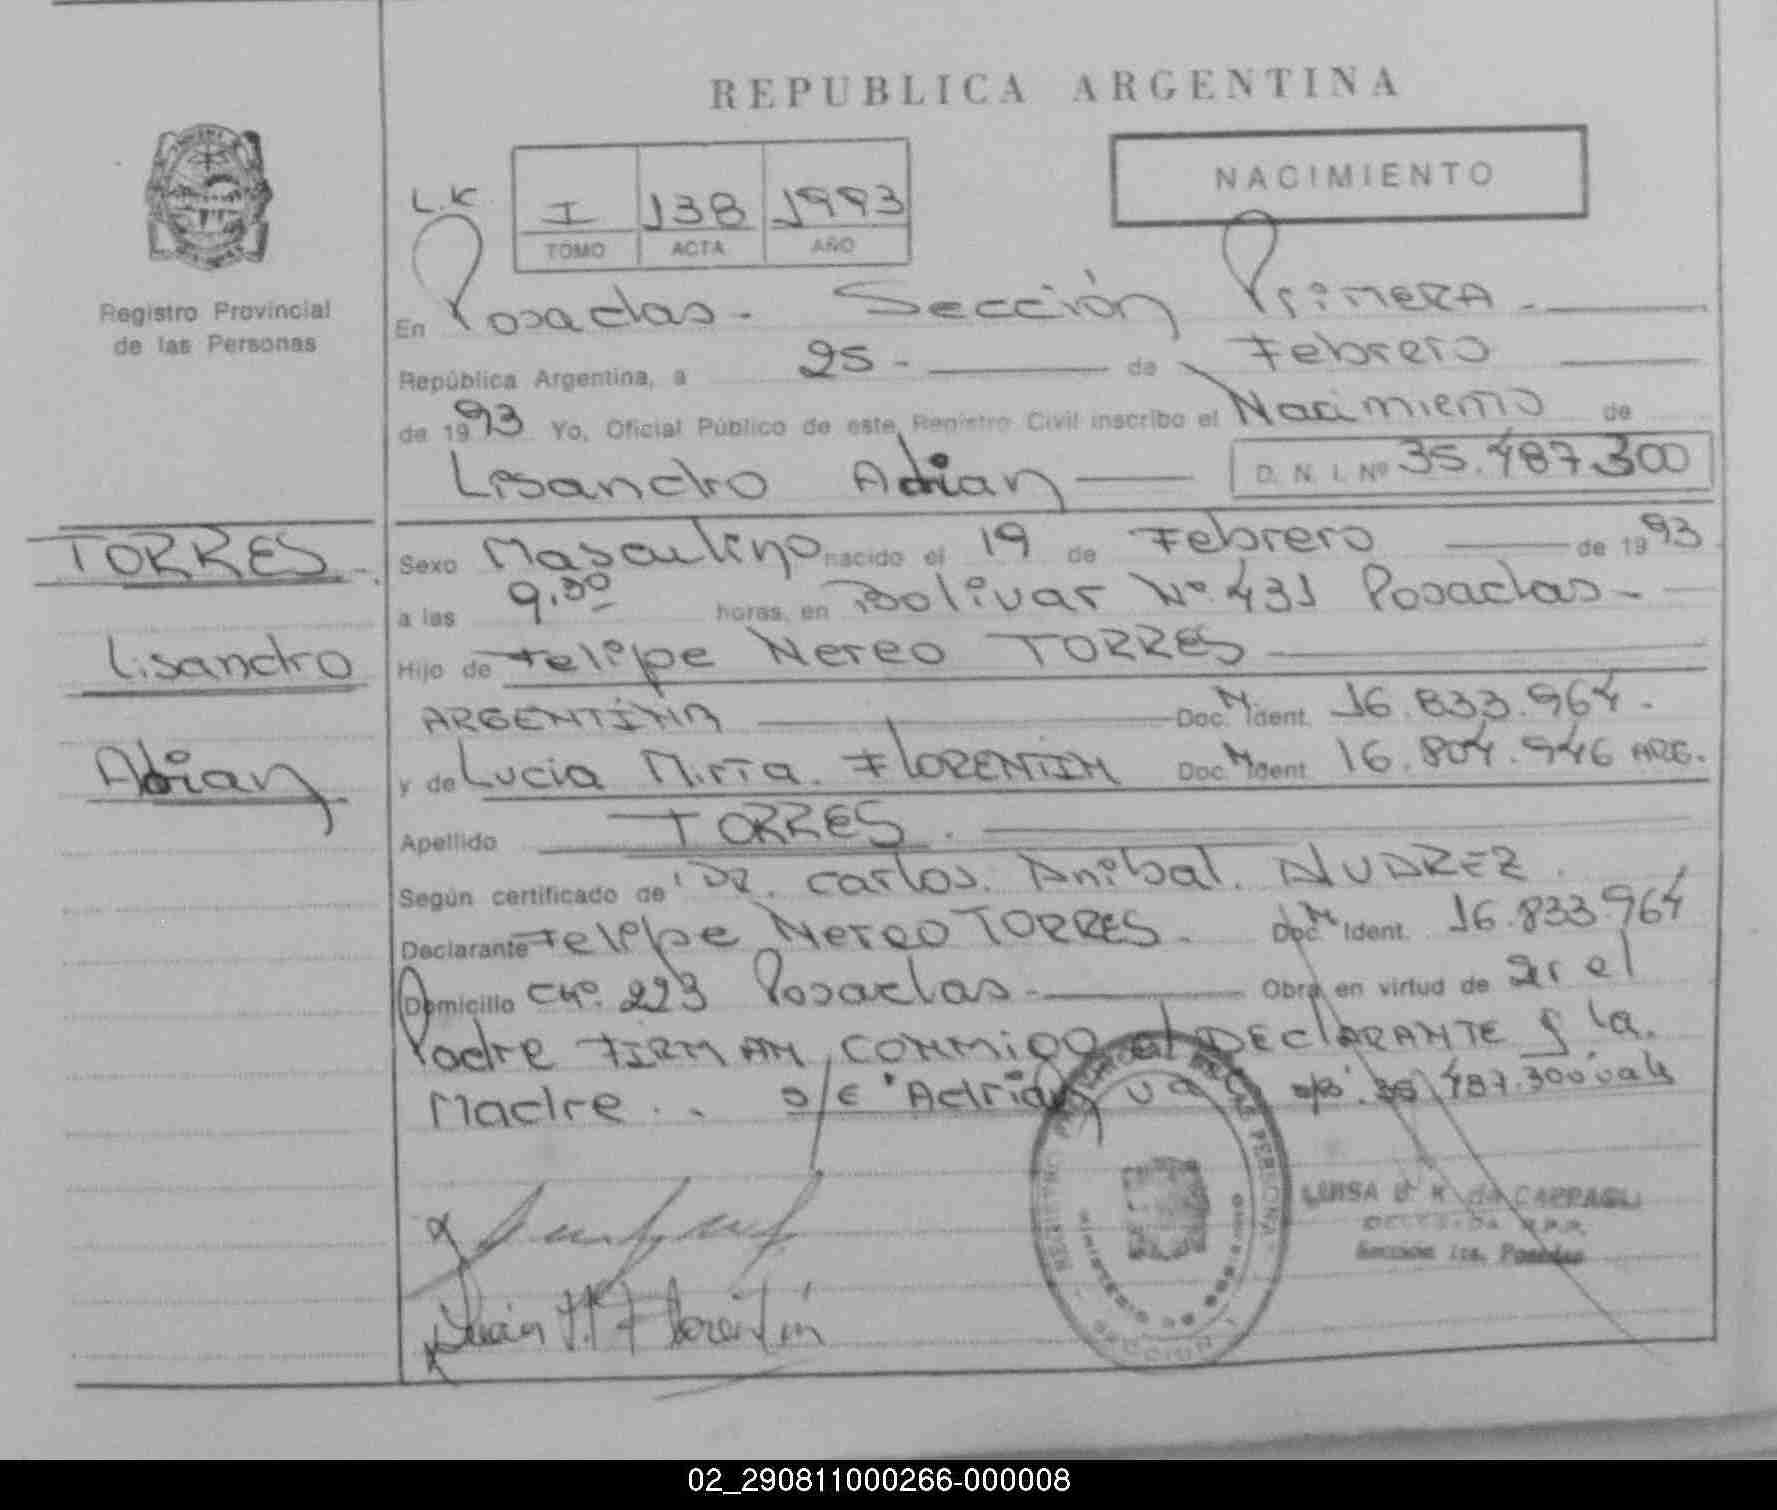 REPUBLICA ARGENTINA
NACIMIENTO
L.K.
I 138 1993
TOMO ACTA AÑO
Registro Provincial
de las Personas
En Posadas - Sección Primera -
República Argentina, a 25 - de Febrero
de 1993 Yo, Oficial Público de este Registro Civil inscribo el Nacimiento de
Lisandro Adrian D. N. I. Nº 35.487.300
TORRES
Lisandro
Adrian
Sexo Masculino nacido el 19 de Febrero de 1993
a las 9,30 horas, en Bolivar Nº 431 Posadas -
Hijo de Felipe Nereo TORRES
ARGENTINA Doc. M Ident. 16.833.964.
y de Lucia Mirta. FLORENTIN Doc. M Ident 16.804.946 ARG.
Apellido TORRES.
Según certificado de DR. Carlos. Anibal. ALVAREZ.
Declarante Felipe Nereo TORRES. Doc. M Ident. 16.833.964
Domicilio CHº. 223 Posadas - Obra en virtud de ser el
Padre FIRMAN CONMIGO el DECLARANTE y la.
Madre. . s/e "Adrian" va s/b. 35.487.300 vale
LUISA K de CAPPAGLI
DELEGADA R.P.P.
Sección 1ra. Posadas
SECCION 1
Florentín
02_290811000266-000008